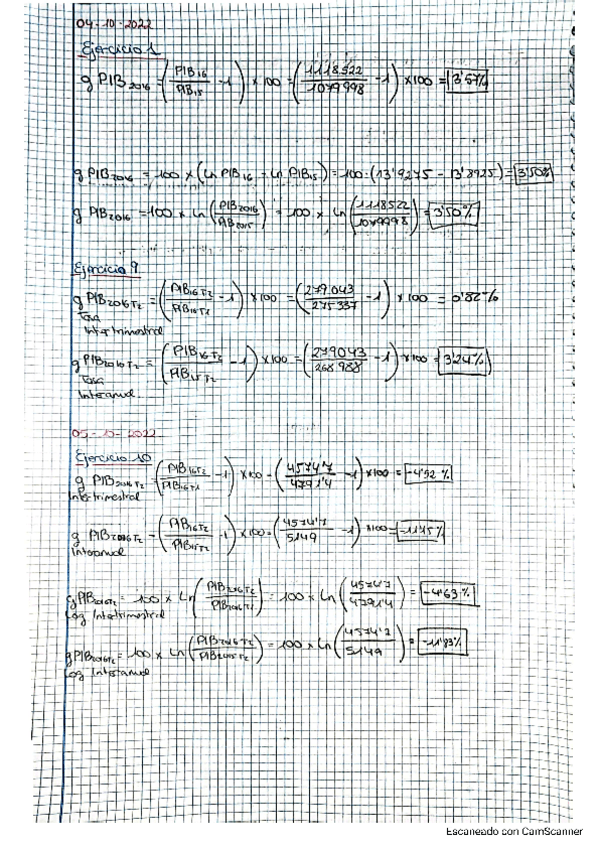 04-10-2022
Ejercicio 1
g PIB 2016 = (PIB16/PIB15 - 1) × 100 = (1118522/1079998 - 1) × 100 = 3'57%
g PIB2016 = 100 × (Ln PIB16 - Ln PIB15) = 100·(13'9275 - 13'8925) = 3'50%
g PIB2016 = 100 × Ln (PIB2016/PIB2015) = 100 × Ln (1118522/1079998) = 3'50%
Ejercicio 9
g PIB2016T2 = (PIB16T2/PIB16T1 - 1) × 100 = (279043/275337 - 1) × 100 = 0'82%
Tasa
Intertrimestral
g PIB2016T2 = (PIB16T2/PIB15T2 - 1) × 100 = (279043/268988 - 1) × 100 = 3'24%
Tasa
Interanual
05-10-2022
Ejercicio 10
g PIB2016T2 = (PIB16T2/PIB16T1 - 1) × 100 = (4574'7/4791'4 - 1) × 100 = -4'52%
Intertrimestral
g PIB2016T2 = (PIB16T2/PIB15T2 - 1) × 100 = (4574'7/5149 - 1) × 100 = -11'15%
Interanual
g PIB2016T2 = 100 × Ln (PIB2016T2/PIB2016T1) = 100 × Ln (4574'7/4791'4) = -4'63%
Log Intertrimestral
g PIB2016T2 = 100 × Ln (PIB2016T2/PIB2015T2) = 100 × Ln (4574'7/5149) = -11'83%
Log Interanual
Escaneado con CamScanner